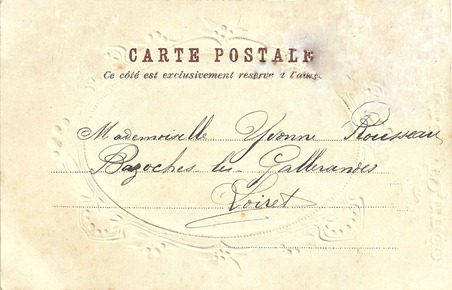 CARTE POSTALE
Ce côté est exclusivement réservé à
Mademoiselle Yvonne Rousseau
Bazoches les Gallerandes
Loiret